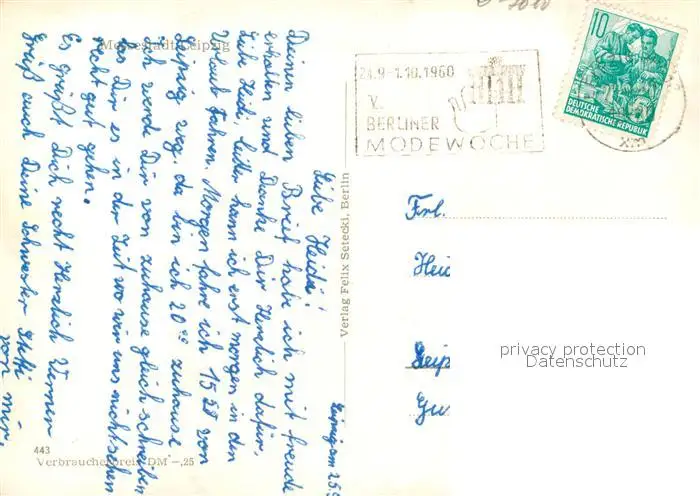 Messestadt Leipzig
Leipzig am 25.
Liebe Heidi!
Deinen lieben Brief habe ich mit freude
erhalten und Danke Dir Herzlich dafür.
Liebe Heidi, leider kann ich erst morgen in den
Urlaub fahren. Morgen fahre ich 15 von
Leipzig weg, da bin ich 20 zuhause
Ich werde Dir von zuhause gleich schreiben
das Dir es in der Zeit wo wir uns nicht sehen
recht gut gehen.
Es grüßt Dich recht Herzlich Werner
Grüß auch Deine Schwester
von mir.
443
Verbraucherpreis DM -,25
Verlag Felix Setecki, Berlin
24.9-1.10.1960
V.
BERLINER
MODEWOCHE
10
5
DEUTSCHE
DEMOKRATISCHE REPUBLIK
Frl.
Heid
Leip
privacy protection
Datenschutz